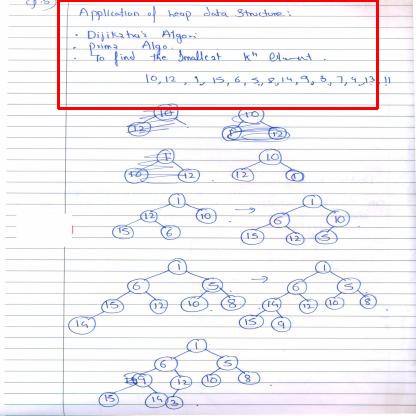 Application of heap data Structure:
• Dijikstra's Algori
• prims Algo.
• To find the Smallest Kth Element.
10, 12, 1, 15, 6, 5, 8, 14, 9, 3, 7, 4, 13, 11
10 10
12 1 12
1 10
10 12 12 1
1 → 1
12 10 6 10
15 6 15 12 5
1 → 1
6 5 6 5
15 12 10 8 14 12 10 8
14 15 9
1
6 5
9 12 10 8
15 14 3